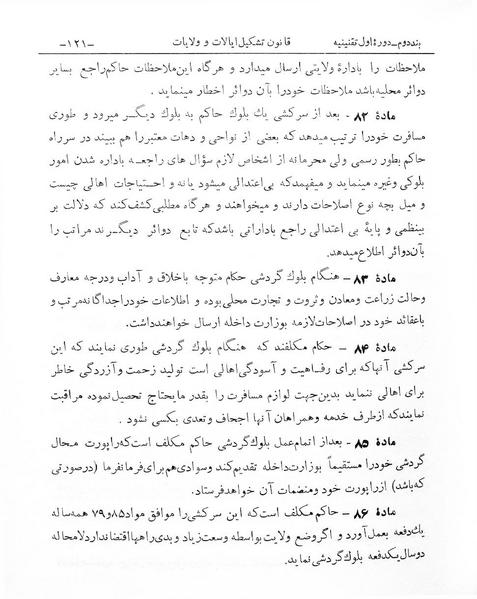 بند دوم ـ دورهٔ اول تقنینیه قانون تشکیل ایالات و ولایات ـ۱۲۱ـ
ملاحظات را باداره ولایتی ارسال میدارد و هرگاه این ملاحظات حاکم راجع بسایر
دوائر محلیه باشد ملاحظات خودرا بآن دوائر اخطار مینماید .
مادهٔ ۸۲ ـ بعد از سرکشی یك بلوك حاکم به بلوك دیگر میرود و طوری
مسافرت خودرا ترتیب میدهد که بعضی از نواحی و دهات معتبر را هم ببیند در سر راه
حاکم بطور رسمی ولی محرمانه از اشخاص لازم سؤال های راجعه باداره شدن امور
بلوکی وغیره مینماید و میفهمد که بی اعتدالی میشود یا نه و احتیاجات اهالی چیست
و میل بچه نوع اصلاحات دارند و میخواهند و هرگاه مطلبی کشف کند که دلالت بر
بینظمی و پایهٔ بی اعتدالی راجع باداراتی باشد که تابع دوائر دیگرند مراتب را
بآن دوائر اطلاع میدهد.
مادهٔ ۸۳ ـ هنگام بلوك گردشی حکام متوجه باخلاق و آداب ودرجه معارف
وحالت زراعت ومعادن وثروت و تجارت محلی بوده و اطلاعات خودرا جداگانه مرتب و
باعقائد خود در اصلاحات لازمه بوزارت داخله ارسال خواهند داشت.
مادهٔ ۸۴ ـ حکام مکلفند که هنگام بلوك گردشی طوری نمایند که این
سرکشی آنها که برای رفاهیت و آسودگی اهالی است تولید زحمت و آزردگی خاطر
برای اهالی ننماید بدین جهت لوازم مسافرت را بقدر مایحتاج تحصیل نموده مراقبت
نمایند که از طرف خدمه وهمراهان آنها اجحاف وتعدی بکسی نشود .
مادهٔ ۸۵ ـ بعد از اتمام عمل بلوك گردشی حاکم مکلف است که راپورت محال
گردشی خودرا مستقیماً بوزارت داخله تقدیم کند وسوادی هم برای فرمانفرما (درصورتی
که باشد) از راپورت خود ومنضمات آن خواهد فرستاد.
مادهٔ ۸۶ ـ حاکم مکلف است که این سرکشی را موافق مواد ۸۵ و ۷۹ همه ساله
یك دفعه بعمل آورد و اگر وضع ولایت بواسطه وسعت زیاد و بدی راهها اقتضا ندارد لامحاله
دوسال یکدفعه بلوك گردشی نماید.